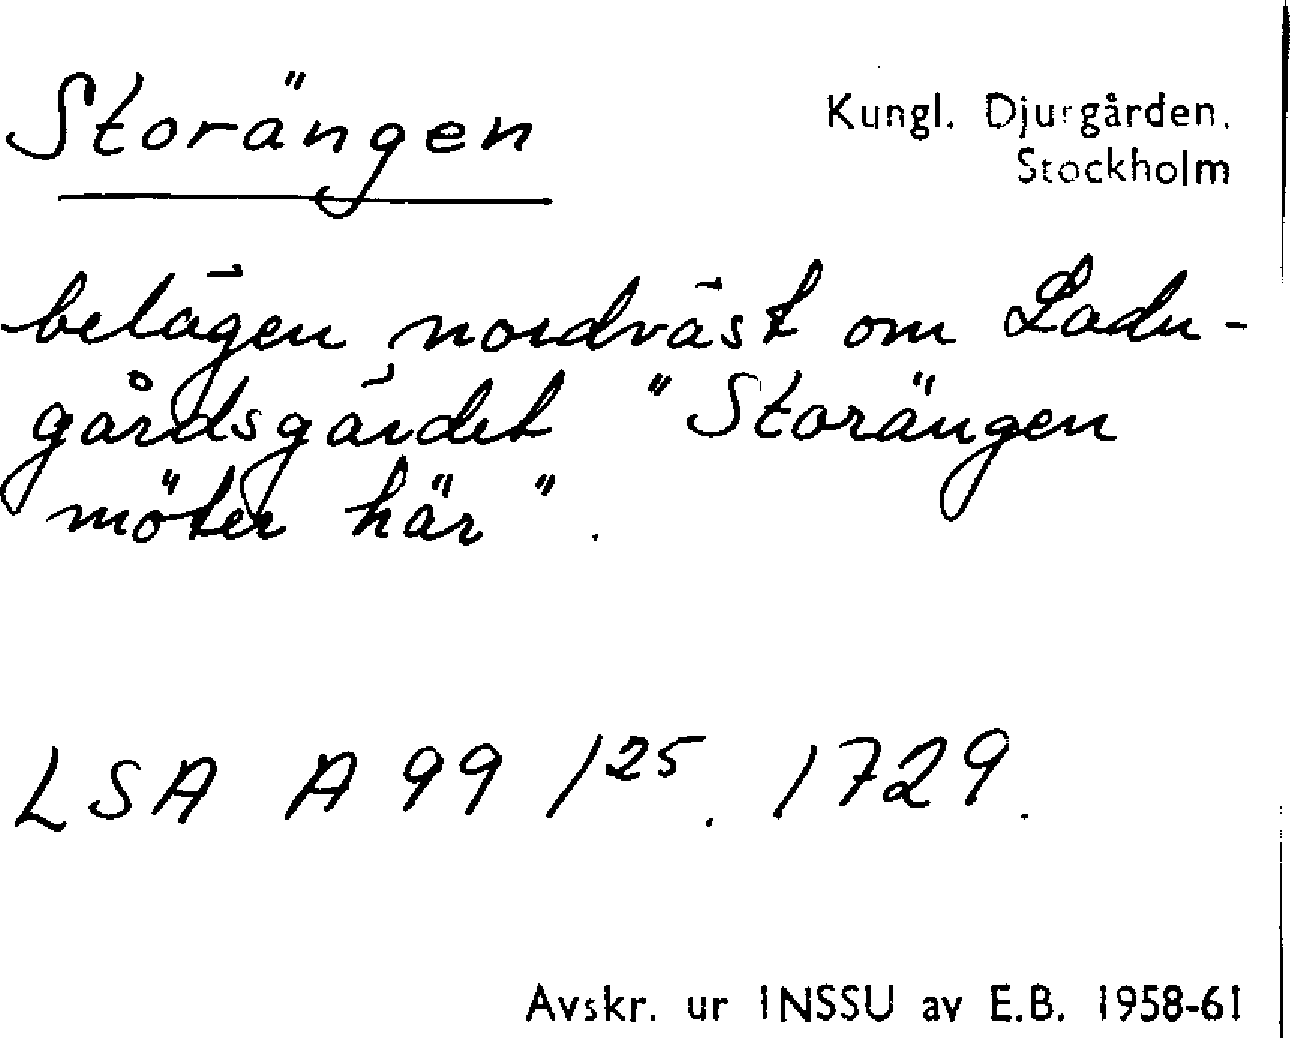 Storängen
Kungl. Djurgården.
Stockholm
belägen nordväst om Ladu-
gårdsgärdet "Storängen
möter här".
LSA A 99 /25. 1729.
Avskr. ur INSSU av E.B. 1958-61